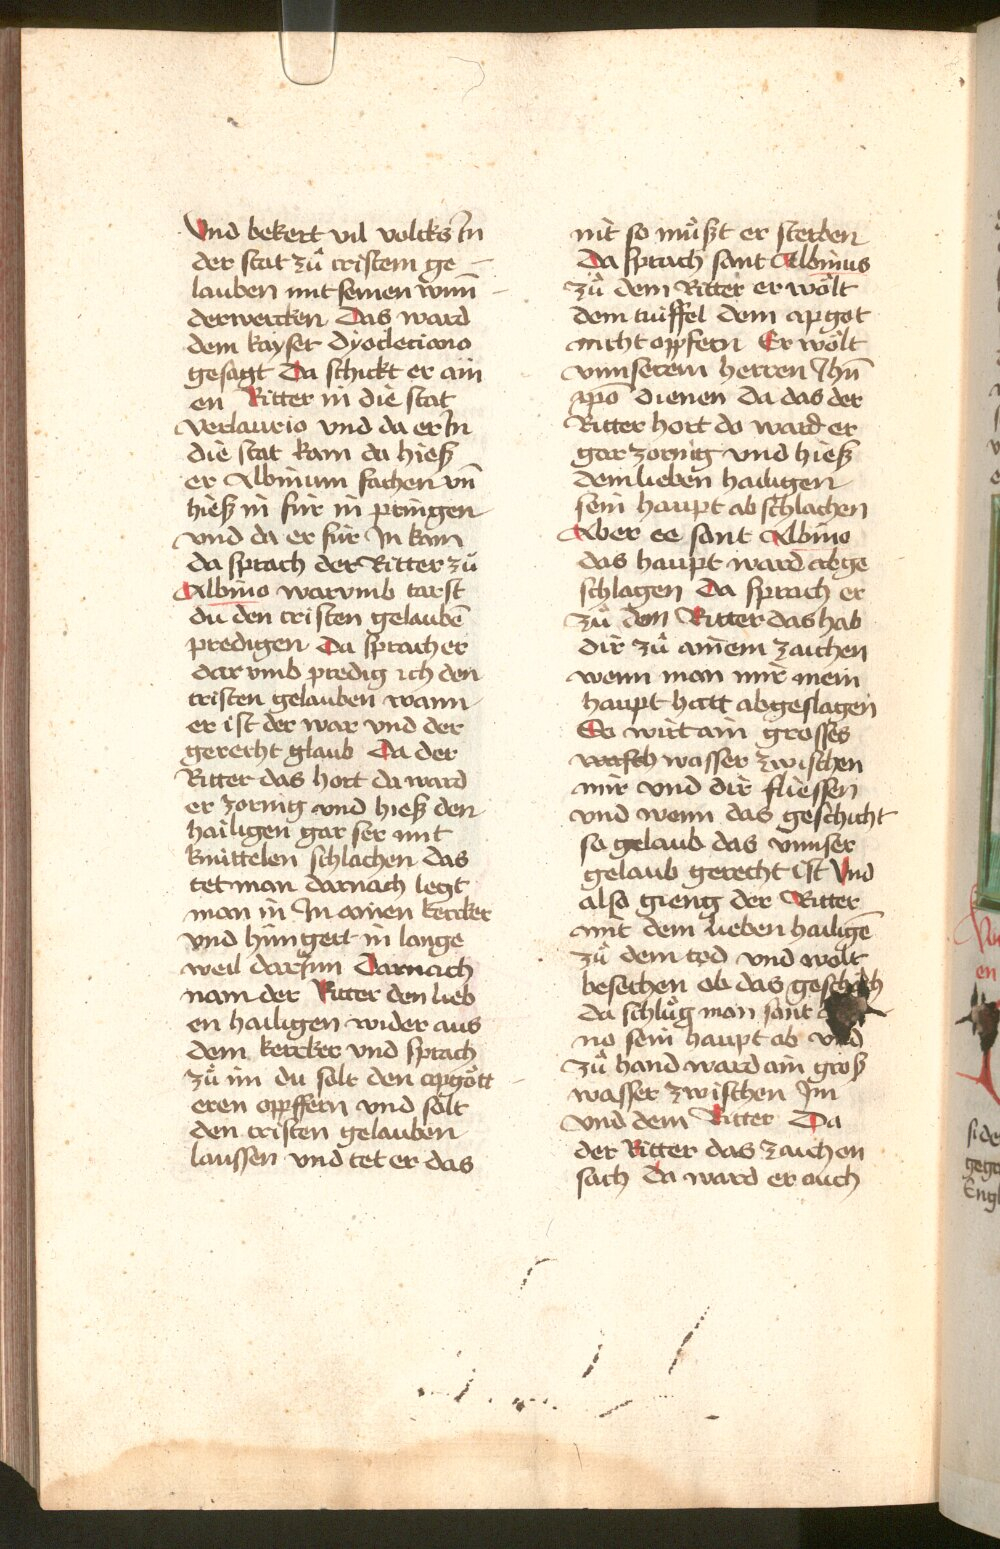 Vnd bekert vil volcks In
der stat zuͦ cristem ge
lauben mit seinen wun̄
derwercken Das ward
dem kayser dyocleciano
gesagt Da schickt er ain
en Ritter in die stat
verlaurio vnd da er In
die stat kam da hieß
er Albinum fachen vn̄
hieß in für in pringen
vnd da er für In kam
da sprach der Ritter zuͦ
Albino warvmb tarst
du den cristen gelaubē
predigen Da sprach er
dar vmb predig ich den
cristen gelauben wann
er ist der war vnd der
gerecht glaub Da der
Ritter das hort da ward
er zornig vnd hieß den
hailigen gar ser mit
knüttelen schlachen das
tet man darnach legt
man in In ainen kercker
vnd hüngert in lange
weil darInn Darnach
nam der Ritter den lieb
en hailigen wider aus
dem kercker vnd sprach
zuͦ im du solt den apgött
eren opffern vnd solt
den cristen gelauben
laussen vnd tet er das
nit so muͦßt er sterben
Da sprach sant Albinus
zuͦ dem Ritter er wölt
dem tuiffel dem apgot
nicht opfern Er wölt
vnnserem herren Jhū
xp̄o dienen da das der
Ritter hort do ward er
gar zornig vnd hieß
dem lieben hailigen
sein haupt ab schlachen
Aber ee sant Albino
das haupt ward abge
schlagen Da sprach er
zuͦ dem Ritter das hab
dir zuͦ ainem zaichen
wenn man mir mein
haupt hatt abgeslagen
So wirt ain grosses
wasch wasser zwischen
mir vnd dir fliessen
vnd wenn das geschicht
so gelaub das vnnser
gelaub gerecht ist Vnd
also gieng der Ritter
mit dem lieben hailigē
zuͦ dem tod vnd wolt
besechen ob das geschäch
da schluͦg man sant
no sein haupt ab vnd
zuͦ hand ward ain groß
wasser zwischen Im
vnd dem Ritter Da
der Ritter das zaichen
sach Da ward er ouch
en
side
gege
Engl